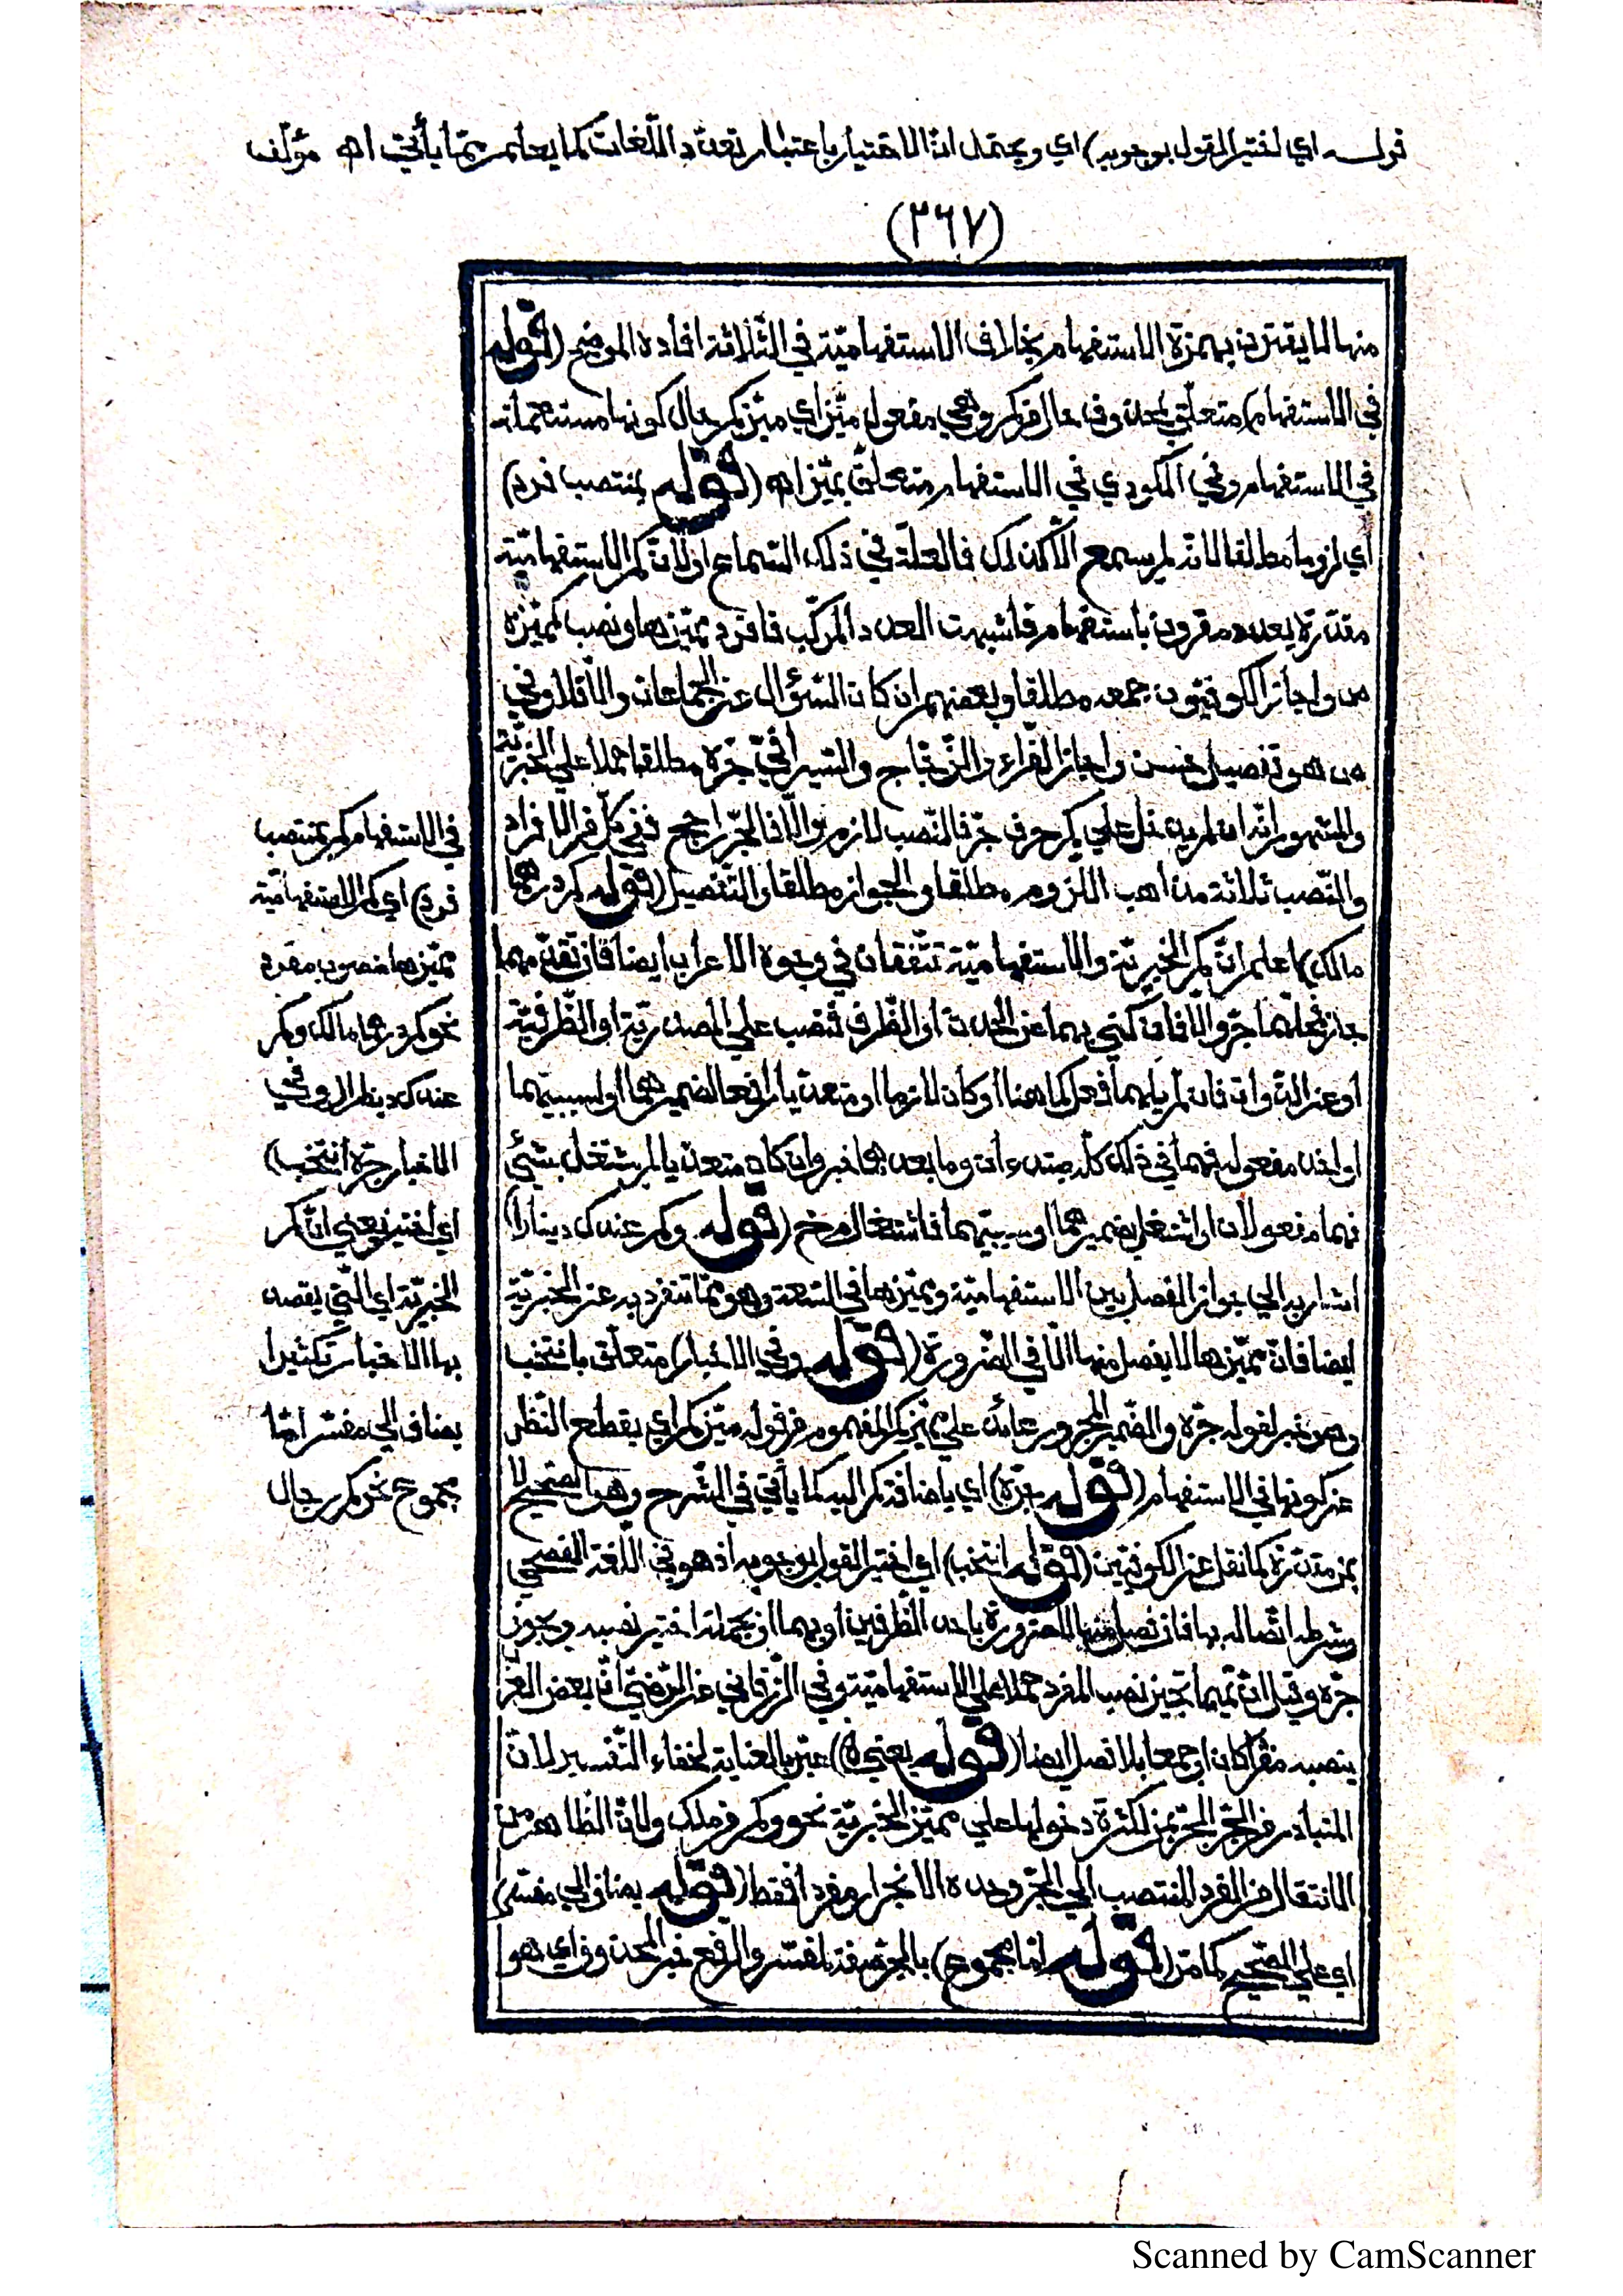 قوله اي اختير القول بوجوبه) اي ويحتمل انّ الاختيار باعتبار تعدّد اللّغات كما يعلم ممّا يأتي اه مؤلّف
(٣٦٧)
منها لا يقترن بهمزة الاستفهام بخلاف الاستفهاميّة في الثّلاثة افاده الموضح (قوله
في الاستفهام) متعلّق بمحذوف حال من كم وهي مفعول ميّز اي ميّز كم حال كونها مستعملة
في الاستفهام وفي المكودي في الاستفهام متعلّق بميّز اه (قوله بمنتصب فرد)
اي لزوما مطلقا لانّه لم يسمع الّا كذلك فالعلّة في ذلك السّماع او لانّ كم الاستفهاميّة
مقدّرة بعدد مقرون باستفهام فاشبهت العدد المركّب فافرد مميّزها ونصب كمميّزه
واجاز الكوفيّون جمعه مطلقا وبعضهم ان كان السّؤال عن الجماعات والّا فلا وفي
هو تفصيل حسن واجاز الفرّاء والزّجّاج والسّيرافيّ جرّه مطلقا حملا على الخبريّة
والمشهور انّه ان لم يدخل على كم حرف جرّ فالنّصب لازم والّا فالجرّ راجح ففي كلّ من الافراد
والنّصب ثلاثة مذاهب اللزوم مطلقا والجواز مطلقا والتّفصيل (قوله كم درهما
مالك) اعلم انّ كم الخبريّة والاستفهاميّة تتّفقان في وجوه الاعراب ايضا فان تقدّمهما
جارّ فحلّهما جرّ والّا فان كني بهما عن الحدث او الظّرف فنصب على المصدريّة او الظّرفيّة
او عن الذّوات فان لم يلهما فعل كما هنا او كان لازما او متعدّيا رافعا لضميرهما او لسببيّهما
او اخذ مفعوله فهما في ذلك كلّه مبتدءان وما بعدهما خبر وان كان متعدّيا لم يشتغل بشيء
فهما مفعولان او اشتغل بضميرهما او سببيّهما فاشتغال (قوله وكم عندك دينارا)
اشار به الى جواز الفصل بين الاستفهاميّة ومميّزها في السّعة وهو ممّا تنفرد به عن الخبريّة
ايضا فانّ مميّزها لا يفصل منها الّا في الضّرورة (قوله وفي الاخبار) متعلّق بانتخب
وهو خبر لقوله جرّه والضّمير المجرور عائد على مميّز كم المفهوم من قوله ميّز كم اي بقطع النّظر
عن كونها في الاستفهام (قوله جرّه) اي باضافة كم اليه كما يأتي في الشّرح وهو الصّحيح لا
بمن مقدّرة كما نقل عن الكوفيّين (قوله انتخب) اي اختير القول بوجوبه اذ هو في اللّغة الفصحى
وشرطه اتّصاله بها فان فصل منها للضرورة باحد الظّرفين او بهما او بجملة اختير نصبه ويجوز
جرّه وقيل انّ تميما تجيز نصب المفرد حملا على الاستفهاميّة وفي الزّرقاني عن الرّضيّ انّ بعض العرب
ينصبه مفردا كان او جمعا بلا فصل ايضا (قوله يعني) عبّر بالعناية لخفاء التّفسير لانّ
المتبادر من الجرّ الجرّ بمن لكثرة دخولها على مميّز الخبريّة نحو وكم من ملك ولانّ الظّاهر من
الانتقال من المفرد المنتصب الى الجرّ وحده الانجرار مفردا فقط (قوله يضاف الى مفسّر)
اي على الصّحيح كما مرّ (قوله امّا مجموع) بالجرّ صفة لمفسّر والرّفع خبر لمحذوف اي هو
في الاستفهام كم بمنتصب
فرد) اي كم الاستفهاميّة
مميّزها منصوب مفرد
نحو كم درهما مالك وكم
عندك دينارا (وفي
الاخبار جرّه انتخب)
اي اختير يعني انّ كم
الخبريّة اي الّتي يقصد
بها الاخبار تكثيرا
يضاف الى مفسّر امّا
مجموع نحو كم رجال
Scanned by CamScanner